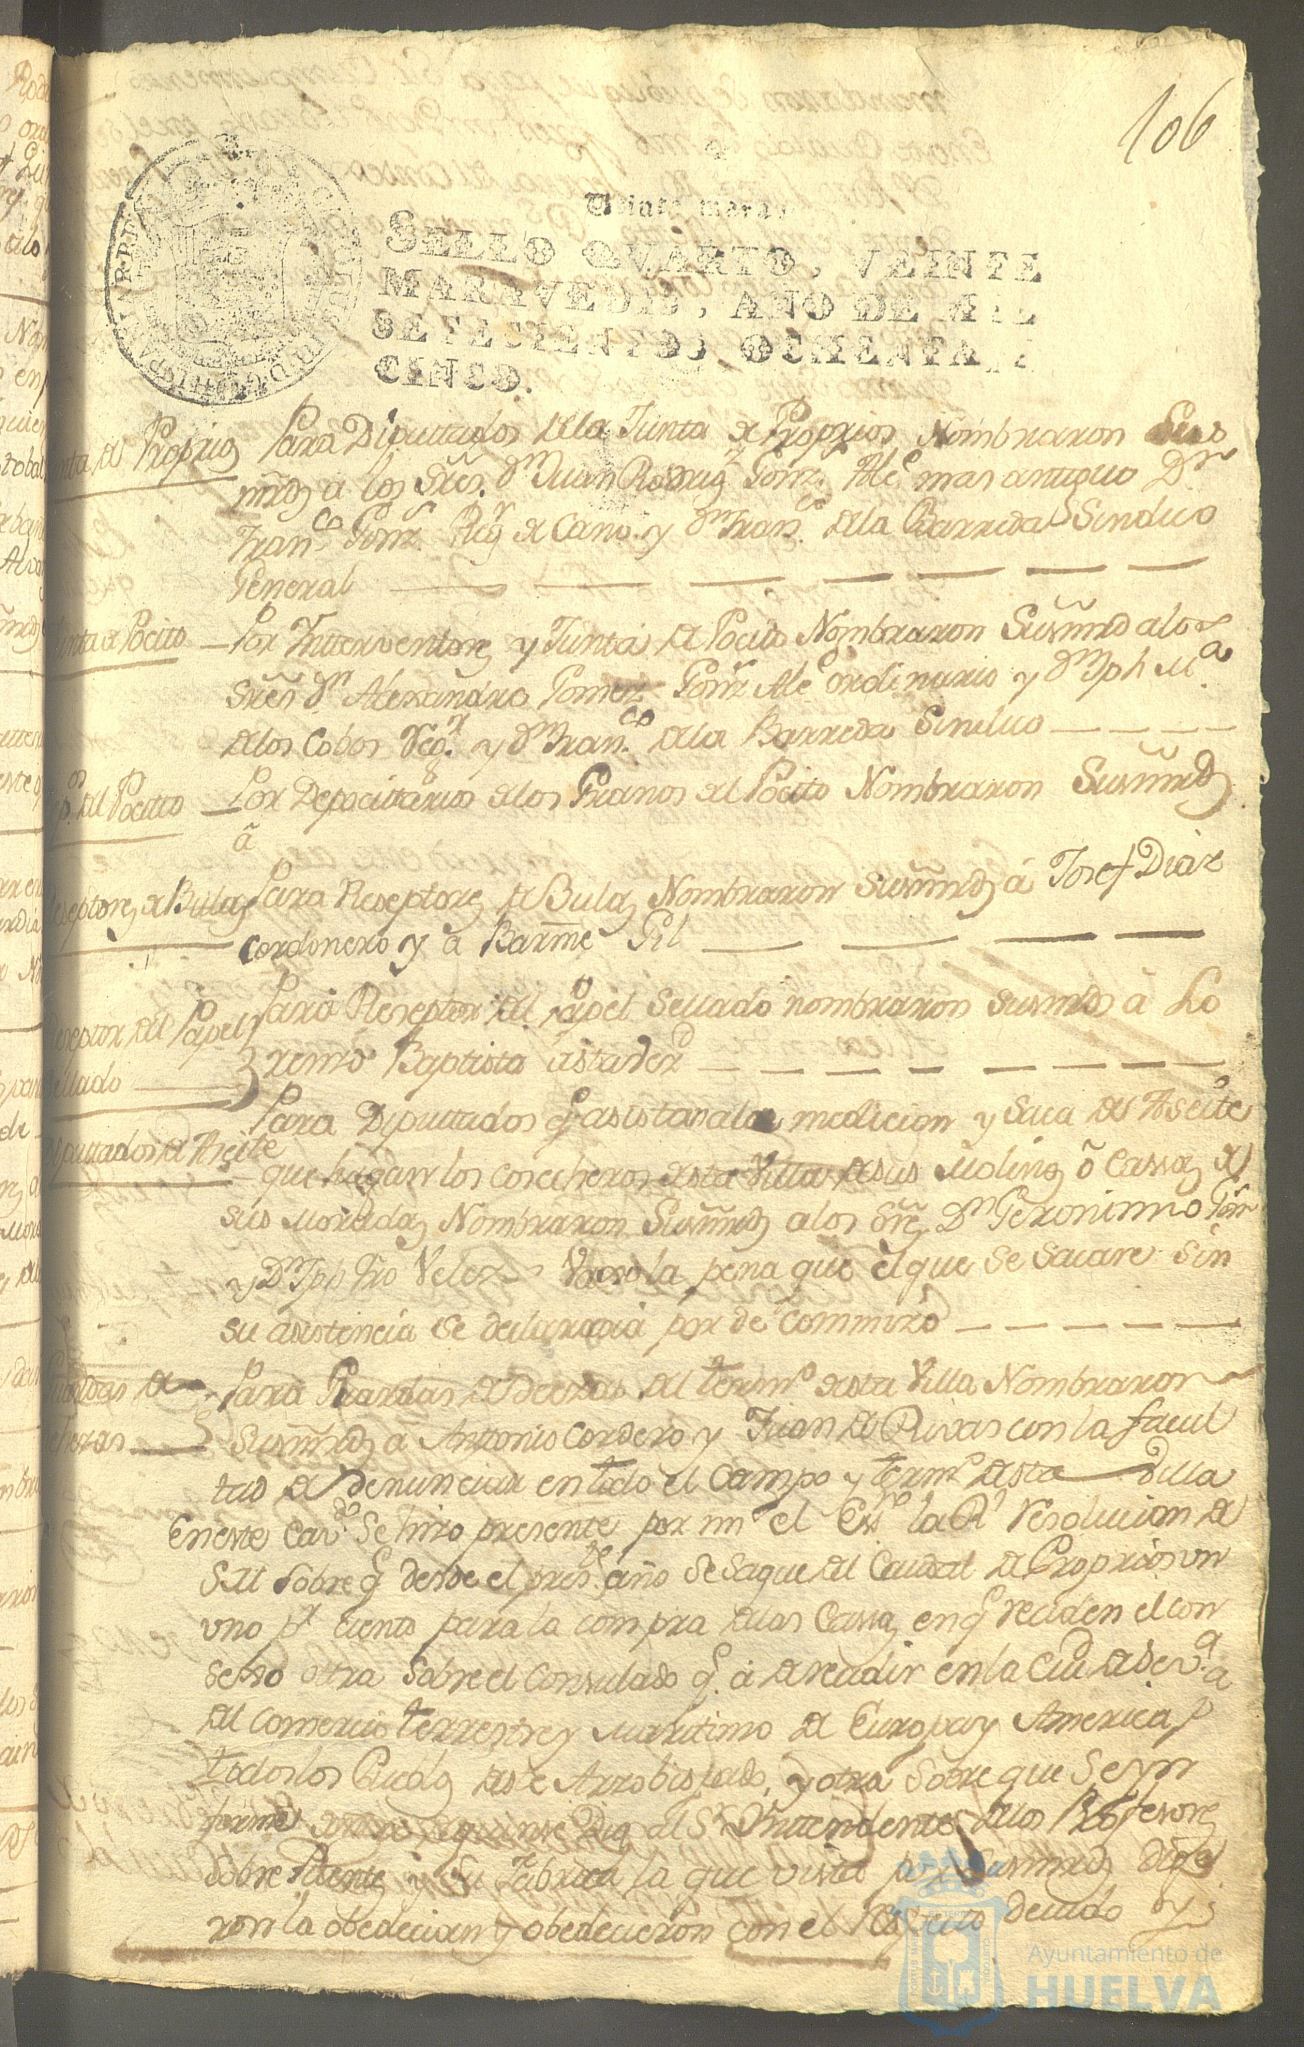 106
Veinte marav
SELLO QVARTO, VEINTE
MARAVEDIS, AÑO DE MIL
SETECIENTOS OCHENTA Y
CINCO.
nta de Propios Para Diputtados de la Junta de Proprios Nombraron Sus
mrds a los Sres. Dn Juan Rodrig Gonz. Alce mas antiguo Dn
Franco Gonz. Reg de Cano. y Dn Franco de la Barreda Sindico
General
unta de Pocito Por Intterventores y Junta de Pocito Nombraron Susmrd a los
Sres Dn Alexandro Gomez Gonz Alce ordinario y Dn Jph Ma
de los Cobos Regr y Dn Franco de la Barreda Sindico
del Pocitto Por Depocitarios de los Granos del Pocito Nombraron Susmrds
â
eseptores de Bulas Para Reseptores de Bulas Nombraron Susmrds á Josef Diaz
Cordonero y a Barme Gil
eseptor del Papel Para Reseptor del papel Sellado nombraron susmrds à Lo
ellado renzo Baptista
Para Diputtados q asistan a la medicion y Saca del Aseite
iputtados de Aseite que hagan los Cosecheros desta Villa de sus Molinos ô Cassas de
sus Moradas Nombraron Susmrds a los Sres Dn Geronimo Gom
y Dn Jph Rio Velez Vaxo la pena que el que se sacare sin
su asistencia se declarará por de Commizo
Guardas de Para Guardas de Deezas del termo desta Villa Nombraron
ehezas Susmrds â Anttonio Cordero y Juan de Rivas con la facul
tad de denunciar en todo el Campo y termo desta Villa
En este Cavdo Se hizo presente por mi el Esno la Rl resolucion de
S.M. sobre q desde el preste año Se saque del Caudal de Proprios un
uno pr ciento para la compra de las Cassas en q reciden el con
sexo otra Sobre el Consulado q. á de recidir en la Ciud de Seva
del Comercio terrestre y Maritimo de Europa y America p
todos los Pueblos deste Arzobispado, y otra sobre que se yn
forme quinse dias al Sr Inttendente de los Profesores
sobre Puente y Su Fabrica la que vista por Susmrds dige
ron la obedecian y obedecieron con el respecto devido y
Ayuntamiento de
HUELVA